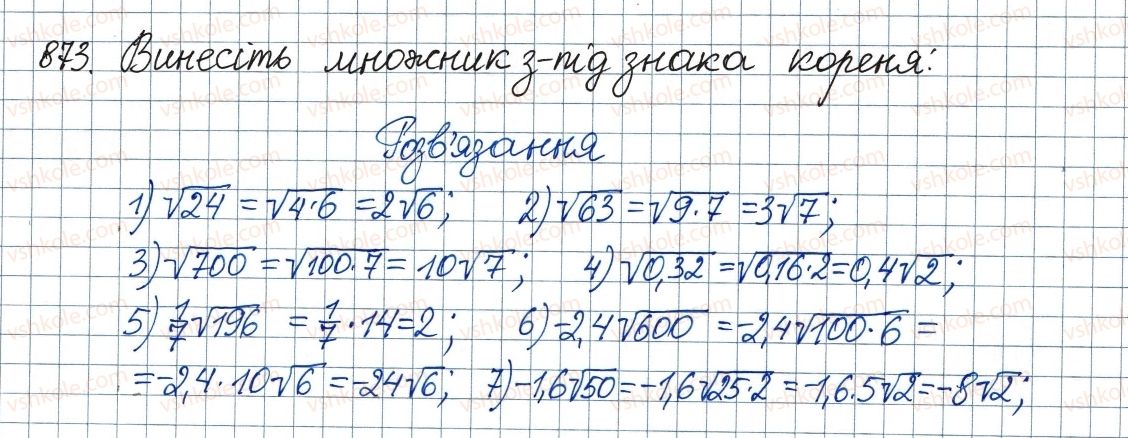 873. Винесіть множник з-під знака кореня:
Розв'язання
1) √24 = √4·6 = 2√6; 2) √63 = √9·7 = 3√7;
3) √700 = √100·7 = 10√7; 4) √0,32 = √0,16·2 = 0,4√2;
5) 1/7 √196 = 1/7 · 14 = 2; 6) -2,4√600 = -2,4√100·6 =
= -2,4·10√6 = -24√6; 7) -1,6√50 = -1,6√25·2 = -1,6·5√2 = -8√2;